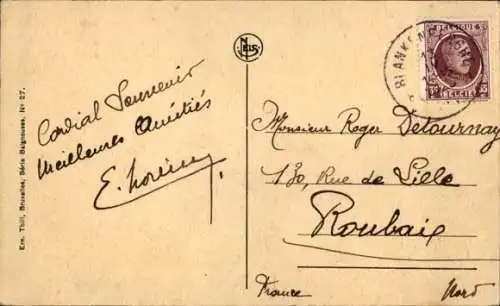 Ern. Thill, Bruxelles, Série Baigneuses, No 27.
Cordial Souvenir
Meilleures Amitiés
NELS
BLANKENBERGHE
BELGIQUE
BELGIE
Monsieur Roger Detournay
130, Rue de Lille
Roubaix
France Nord